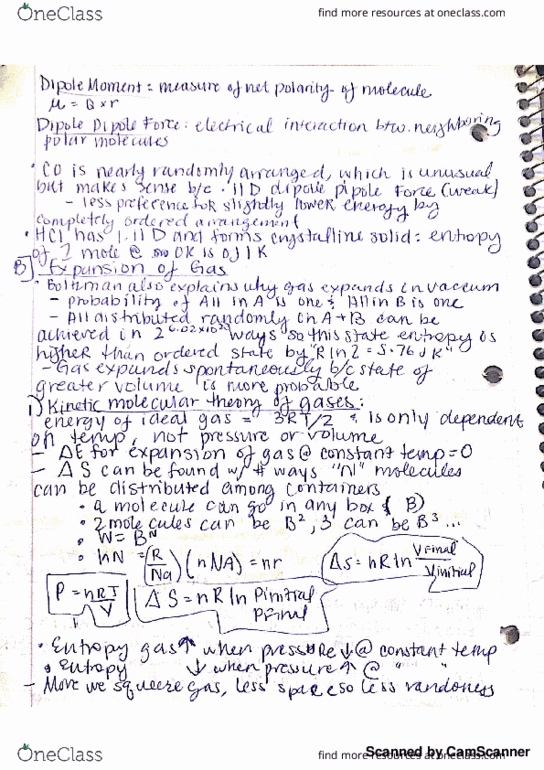 OneClass
find more resources at oneclass.com
Dipole Moment: measure of net polarity of molecule
μ = Q × r
Dipole Dipole Force: electrical interaction btw. neighboring
polar molecules
• CO is nearly randomly arranged, which is unusual
but makes sense b/c .11 D dipole dipole force (weak)
- less preference for slightly lower energy by
completely ordered arrangement
• HCl has 1.11 D and forms crystalline solid: entropy
of 1 mole @ 0K is 0 J/K
B] Expansion of Gas
• Boltman also explains why gas expands in vacuum
- probability of All in A is one & All in B is one
- All distributed randomly in A + B can be
achieved in 2^6.02×10 ways so this state entropy is
higher than ordered state by "R ln 2 = 5.76 J K"
- Gas expands spontaneously b/c state of
greater volume is more probable
1) Kinetic molecular theory of gases:
energy of ideal gas = 3RT/2 & is only dependent
on temp, not pressure or volume
- ΔE for expansion of gas @ constant temp = 0
- ΔS can be found w/ # ways "N" molecules
can be distributed among containers
• a molecule can go in any box (B)
• 2 molecules can be B², 3 can be B³ ...
• W = B^N
• kN = (R/Na) (nNA) = nr
ΔS = nR ln Vfinal/Vinitial
P = nRT/V
ΔS = nR ln Pinitial/Pfinal
• Entropy gas ↑ when pressure ↓ @ constant temp
• Entropy ↓ when pressure ↑ @ " "
- More we squeeze gas, less space so less randoness
OneClass
find more resources at oneclass.com
Scanned by CamScanner